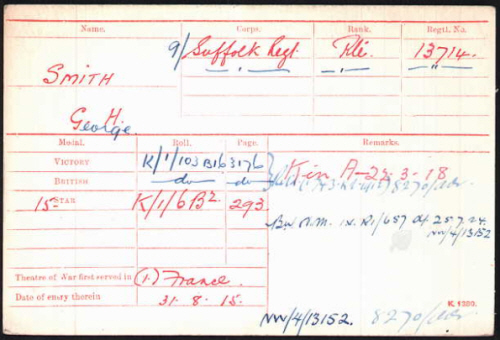 Name. Corps. Rank. Regtl. No.
9/Suffolk Regt Pte. 13714.
SMITH
H.
George
Medal. Roll. Page. Remarks.
VICTORY K/1/103B16 3176 Kin A-22.3.18
BRITISH do do 8270/Adr.
15 STAR K/1/6B2. 293
25.7.24.
NW/4/13152
Theatre of War first served in (1) France.
Date of entry therein 31.8.15.
K. 1380.
NW/4/13152. 8270/Adr